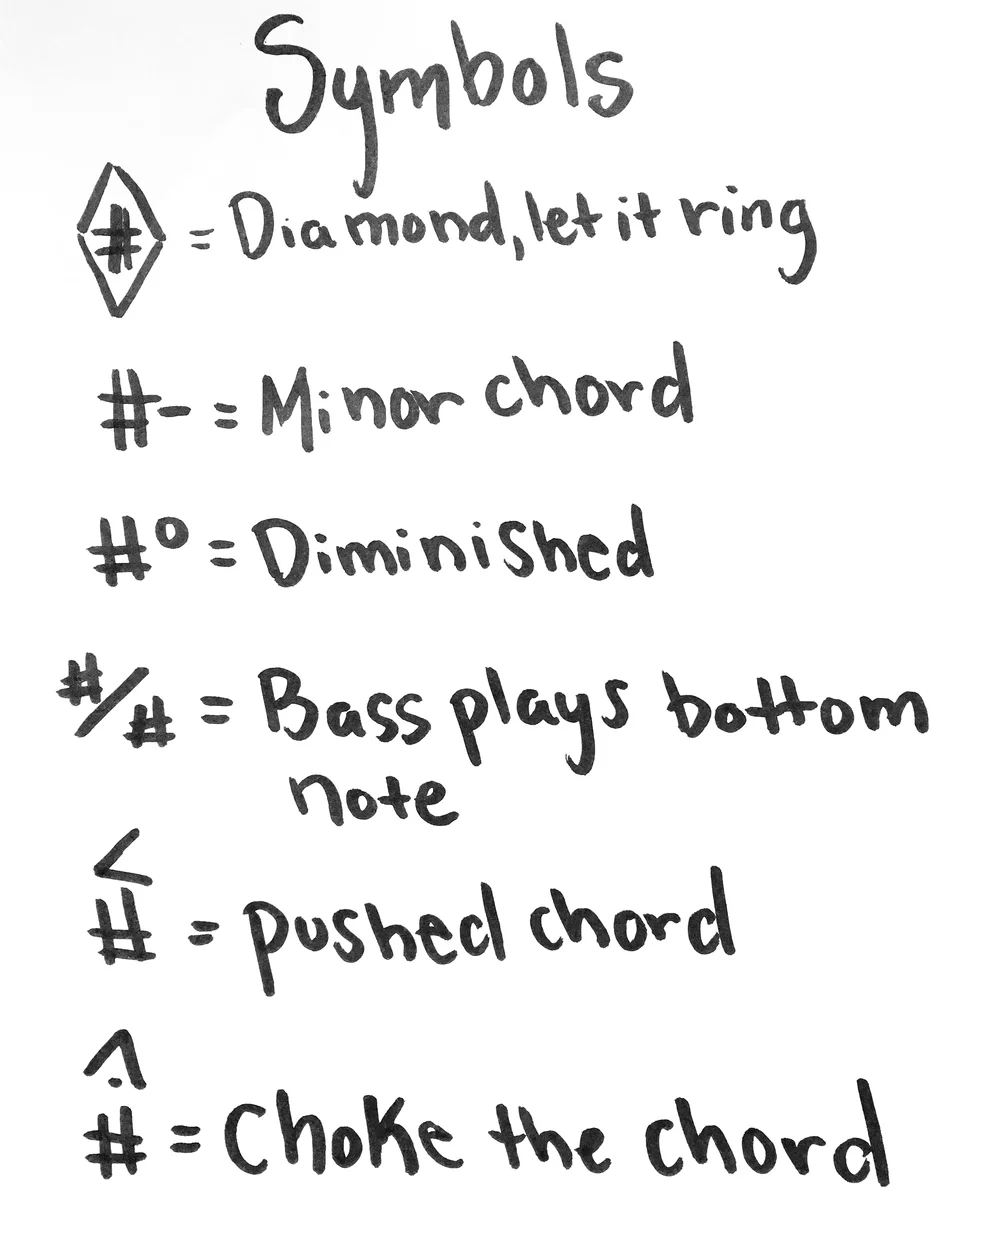 Symbols
# = Diamond, let it ring
#- = Minor chord
#° = Diminished
#/# = Bass plays bottom
note
<
# = pushed chord
^
.
# = Choke the chord